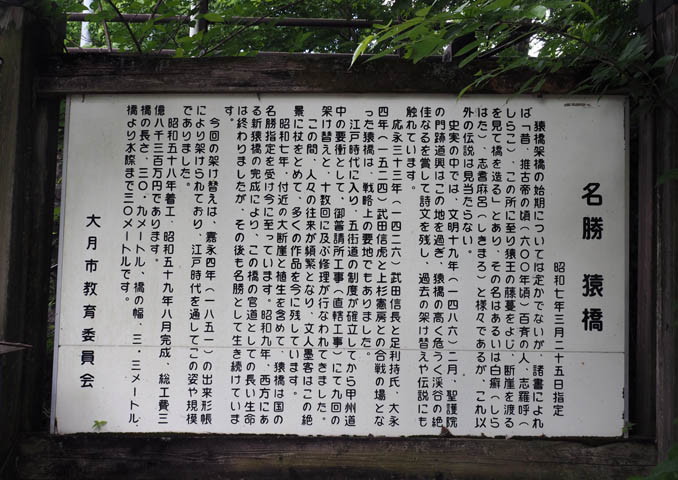 名勝 猿橋
昭和七年三月二十五日指定
猿橋架橋の始期については定かでないが、諸書によれ
ば「昔、推古帝の頃(六〇〇年頃)百済の人、志羅呼(
しらこ)、この所に至り猿王の藤蔓をよじ、断崖を渡る
を見て橋を造る」とあり、その名はあるいは白癬(しら
はた)、志耆麻呂(しきまろ)と様々であるが、これ以
外の伝説は見当たらない。
史実の中では、文明十九年(一四八六)二月、聖護院
の門跡道興はこの地を過ぎ、猿橋の高く危うく渓谷の絶
佳なるを賞して詩文を残し、過去の架け替えや伝説にも
触れています。
応永三十三年(一四二六)武田信長と足利持氏、大永
四年(一五二四)武田信虎と上杉憲房との合戦の場とな
った猿橋は、戦略上の要地でもありました。
江戸時代に入り、五街道の制度が確立してから甲州道
中の要衝として、御普請所工事(直轄工事)にて九回の
架け替えと、十数回に及ぶ修理が行なわれてきました。
この間、人々の往来が頻繁となり、文人墨客はこの絶
景に杖をとめて、多くの作品を今に残しています。
昭和七年、付近の大断崖と植生を含めて、猿橋は国の
名勝指定を受け今に至っています。昭和九年、西方にあ
る新猿橋の完成により、この橋の官道としての長い生命
は終わりましたが、その後も名勝として生き続けていま
す。
今回の架け替えは、嘉永四年(一八五一)の出来形帳
により架けられており、江戸時代を通してこの姿や規模
でありました。
昭和五十八年着工、昭和五十九年八月完成、総工費三
億八千三百万円であります。
橋の長さ、三〇.九メートル、橋の幅、三.三メートル、
橋より水際まで三〇メートルです。
大月市教育委員会